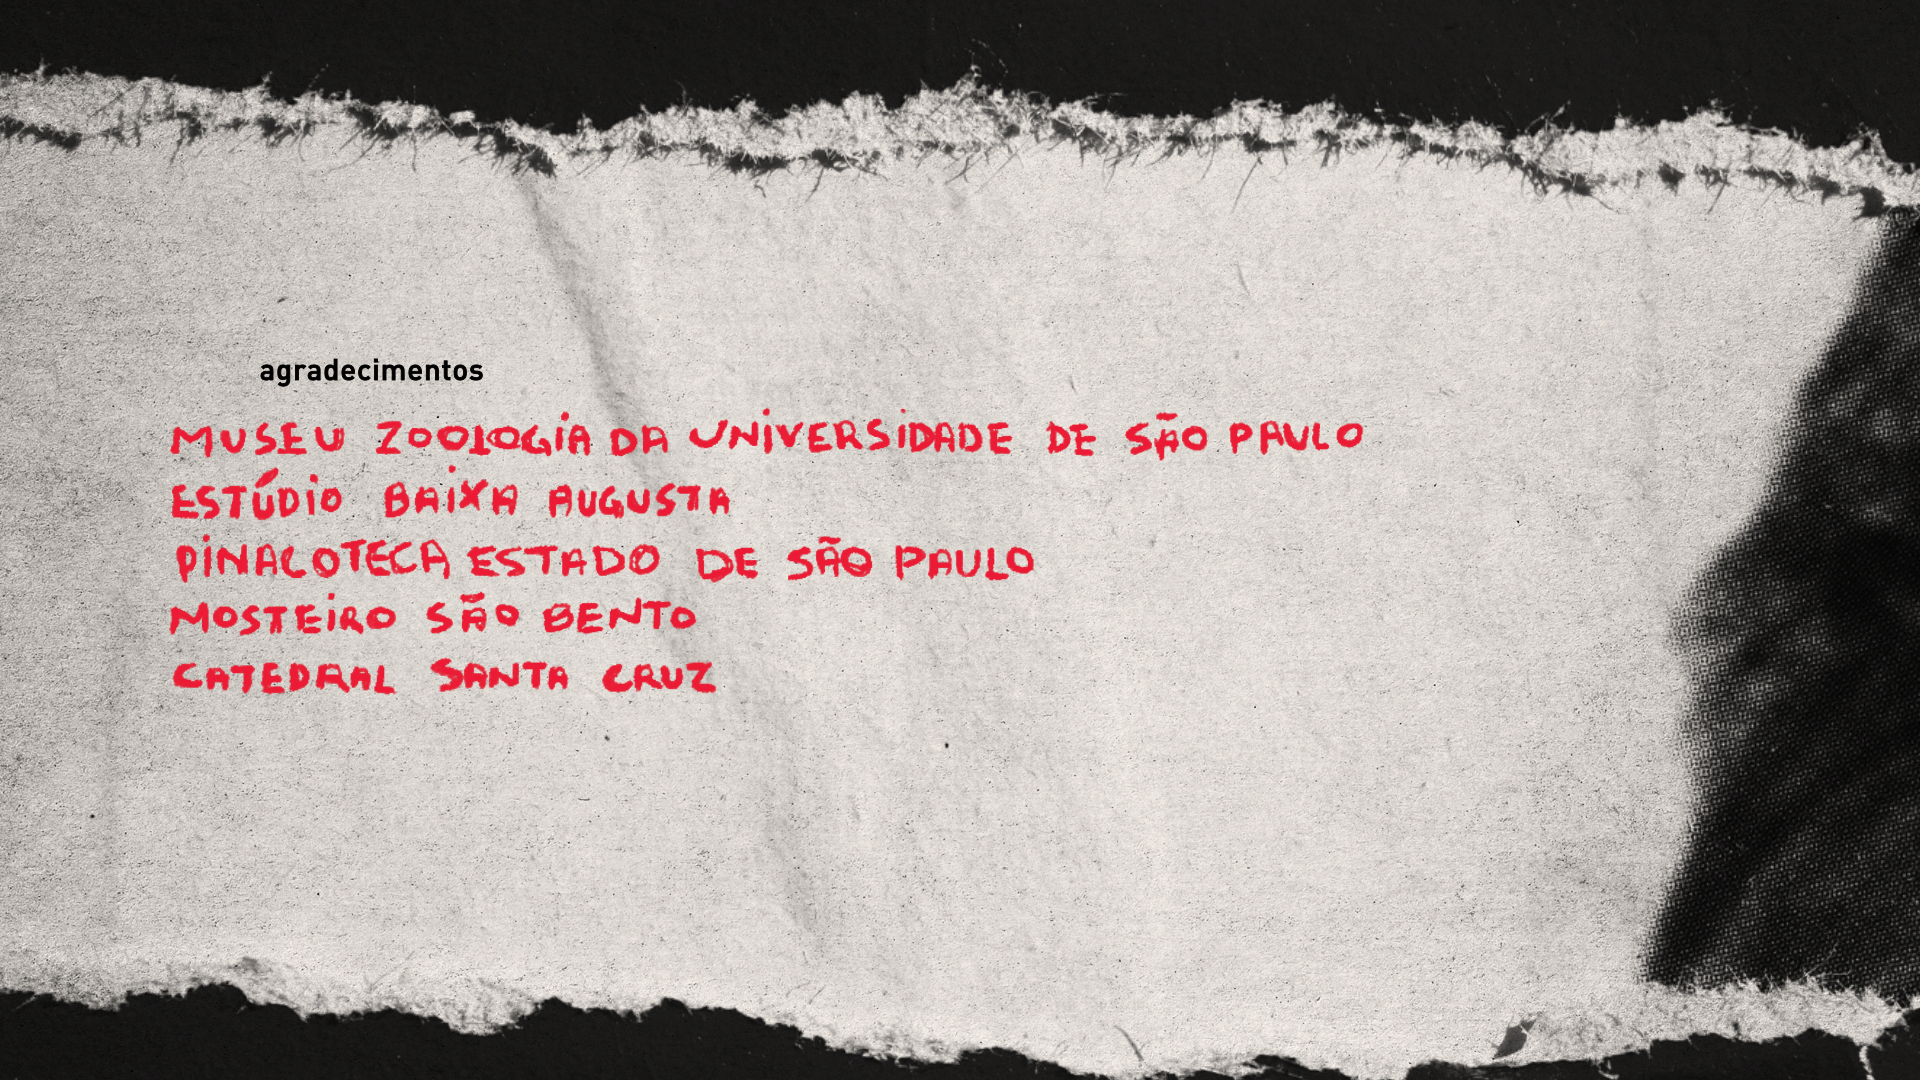 agradecimentos
MUSEU ZOOLOGÍA DA UNIVERSIDADE DE SÃO PAULO
ESTÚDIO BAIXA AUGUSTA
PINACOTECA ESTADO DE SÃO PAULO
MOSTEIRO SÃO BENTO
CATEDRAL SANTA CRUZ